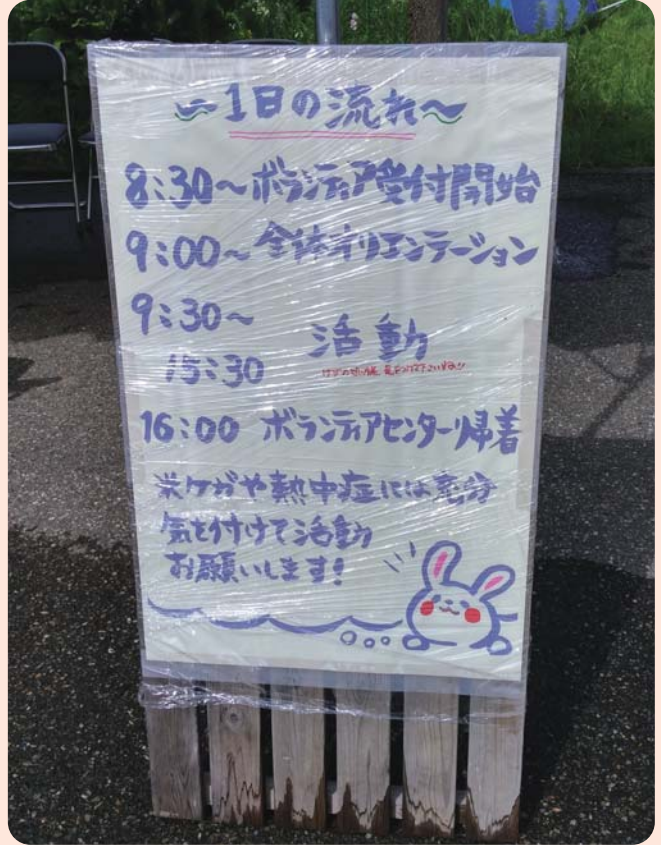 ～1日の流れ～
8:30～ボランティア受付開始
9:00～全体オリエンテーション
9:30～
15:30 活動
16:00 ボランティアセンター帰着
※ケガや熱中症には充分
気を付けて活動
お願いします!